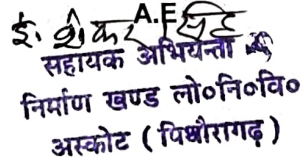 इं. शंकर सिंह
A.E
सहायक अभियन्ता
निर्माण खण्ड लो०नि०वि०
अस्कोट (पिथौरागढ़)